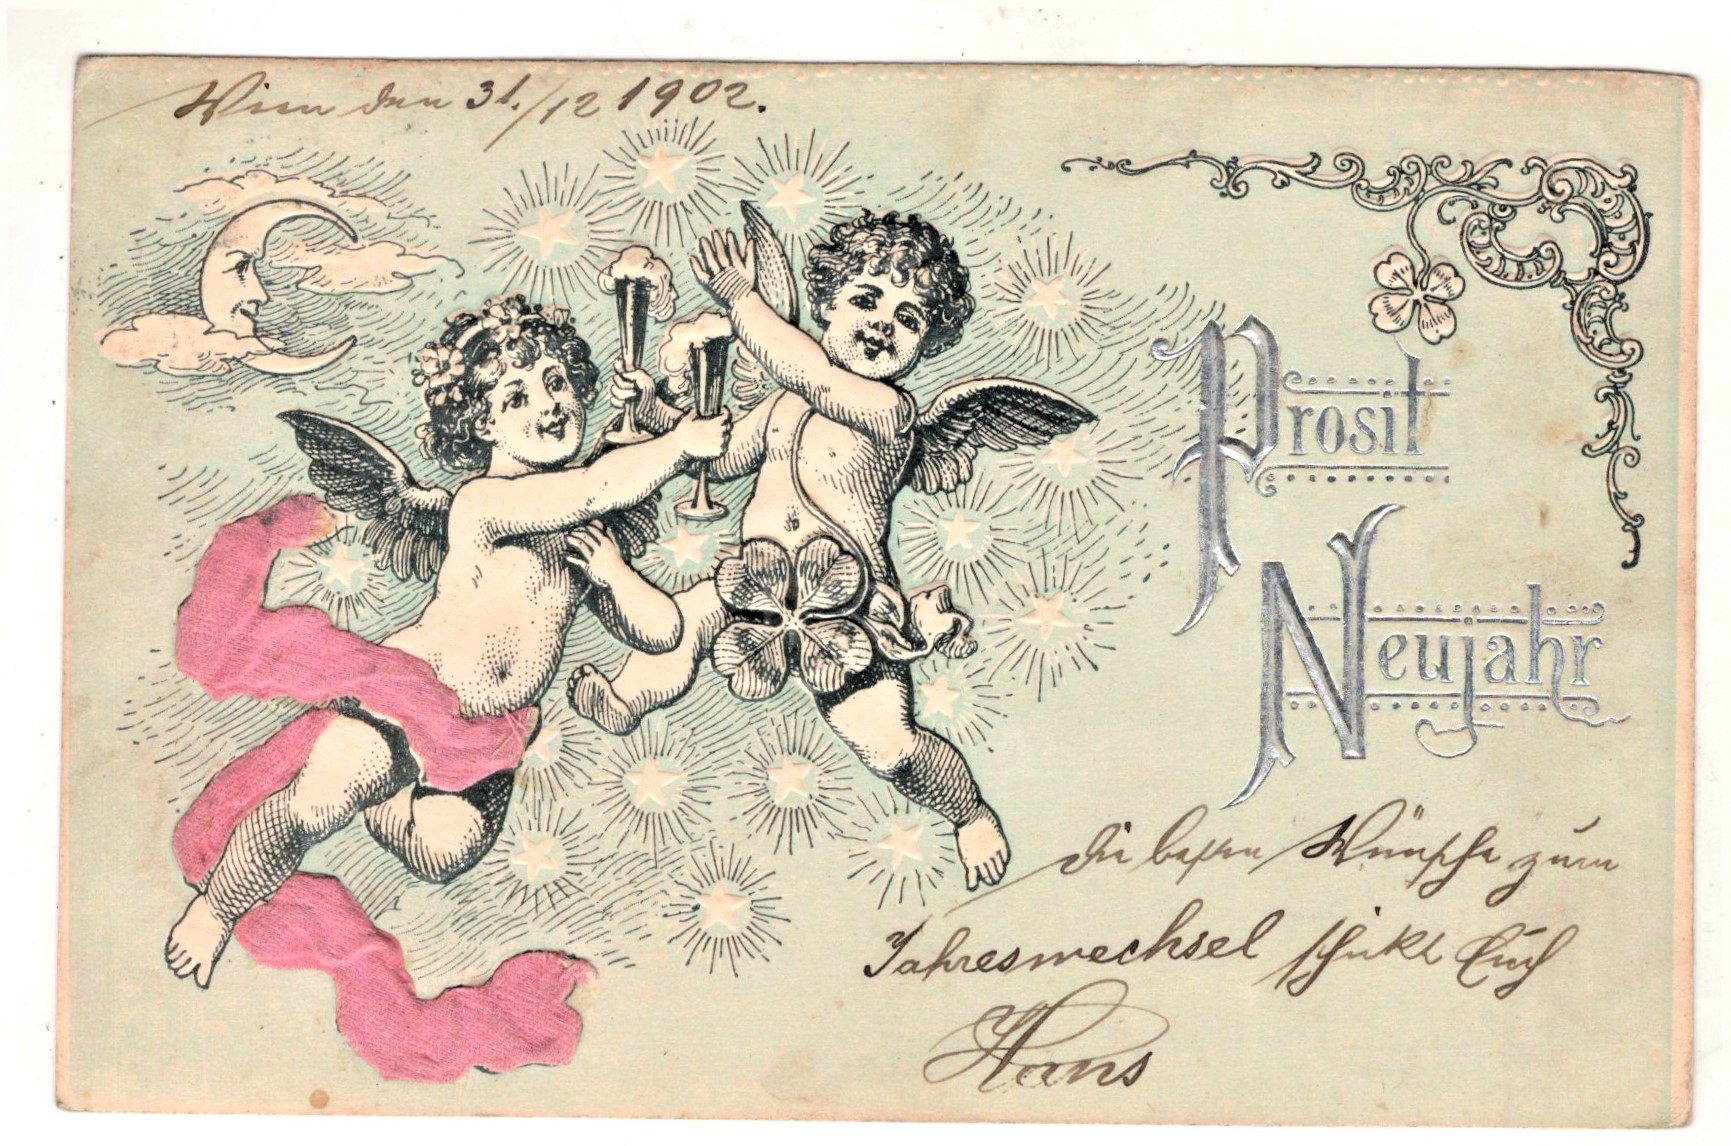 Wien den 31./12 1902.
Prosit
Neujahr
die besten Wünsche zum
Jahreswechsel schickt Euch
Hans